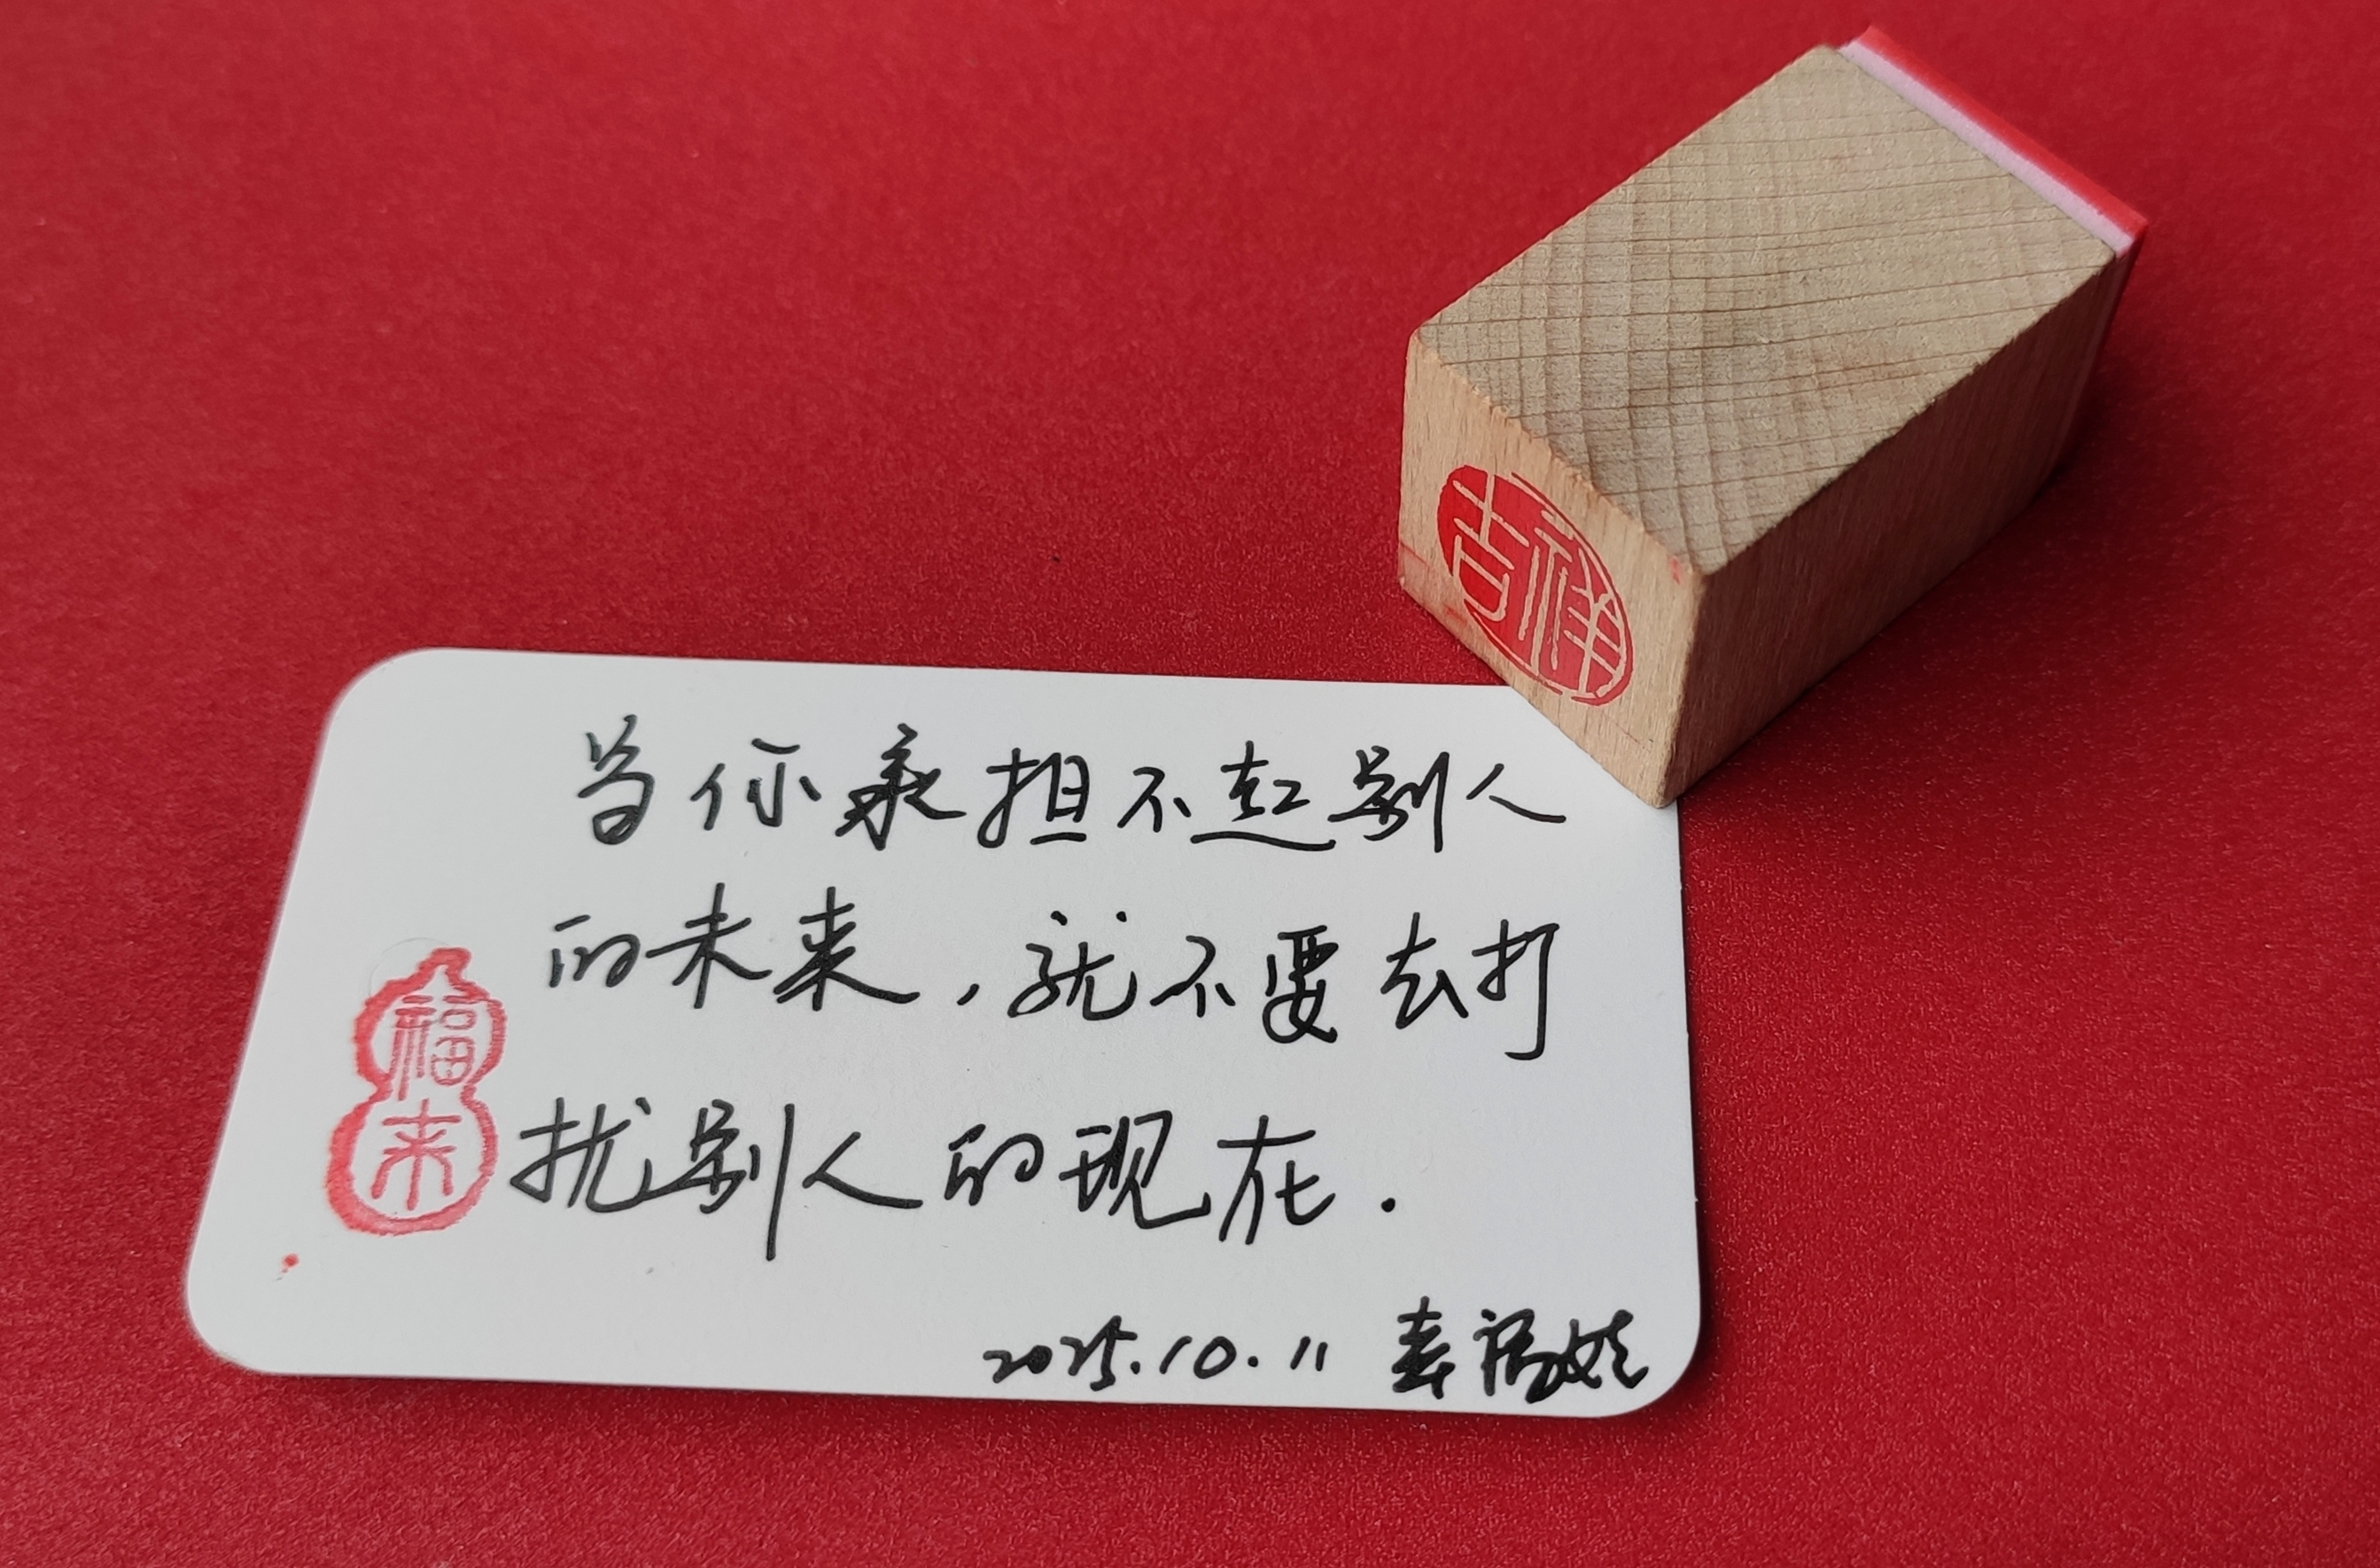 吉祥
当你承担不起别人
的未来，就不要去打
扰别人的现在.
福来
2025.10.11 幸福娃